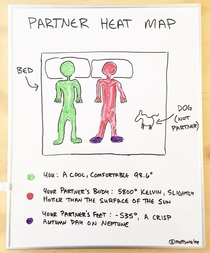 PARTNER HEAT MAP
BED
DOG
(NOT
PARTNER)
YOU: A COOL, COMFORTABLE 98.6°
YOUR PARTNER'S BODY: 5800° KELVIN, SLIGHTLY
HOTTER THAN THE SURFACE OF THE SUN
YOUR PARTNER'S FEET: -535°, A CRISP
AUTUMN DAY ON NEPTUNE